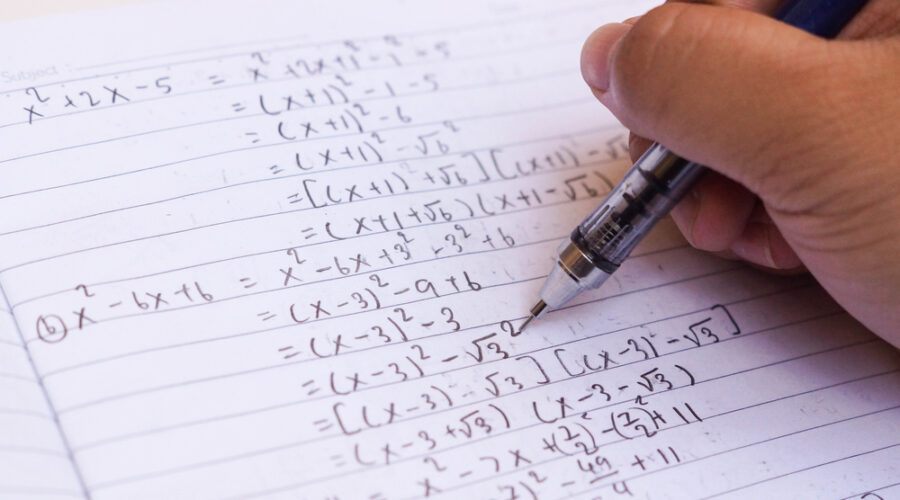 Subject :
x² + 2x - 5 = x² + 2x + 1² - 1² - 5
= (x+1)² - 1 - 5
= (x+1)² - 6
= (x+1)² - √6²
= [(x+1) + √6] [(x+1) - √6
= (x+1+√6) (x+1-√6)
(b) x² - 6x + 6 = x² - 6x + 3² - 3² + 6
= (x-3)² - 9 + 6
= (x-3)² - 3
= (x-3)² - √3²
= [(x-3) - √3] [(x-3) - √3]
= (x-3+√3) (x-3-√3)
= x² - 7x + (7/2)² - (7/2)² + 11
)² - 49/4 + 11